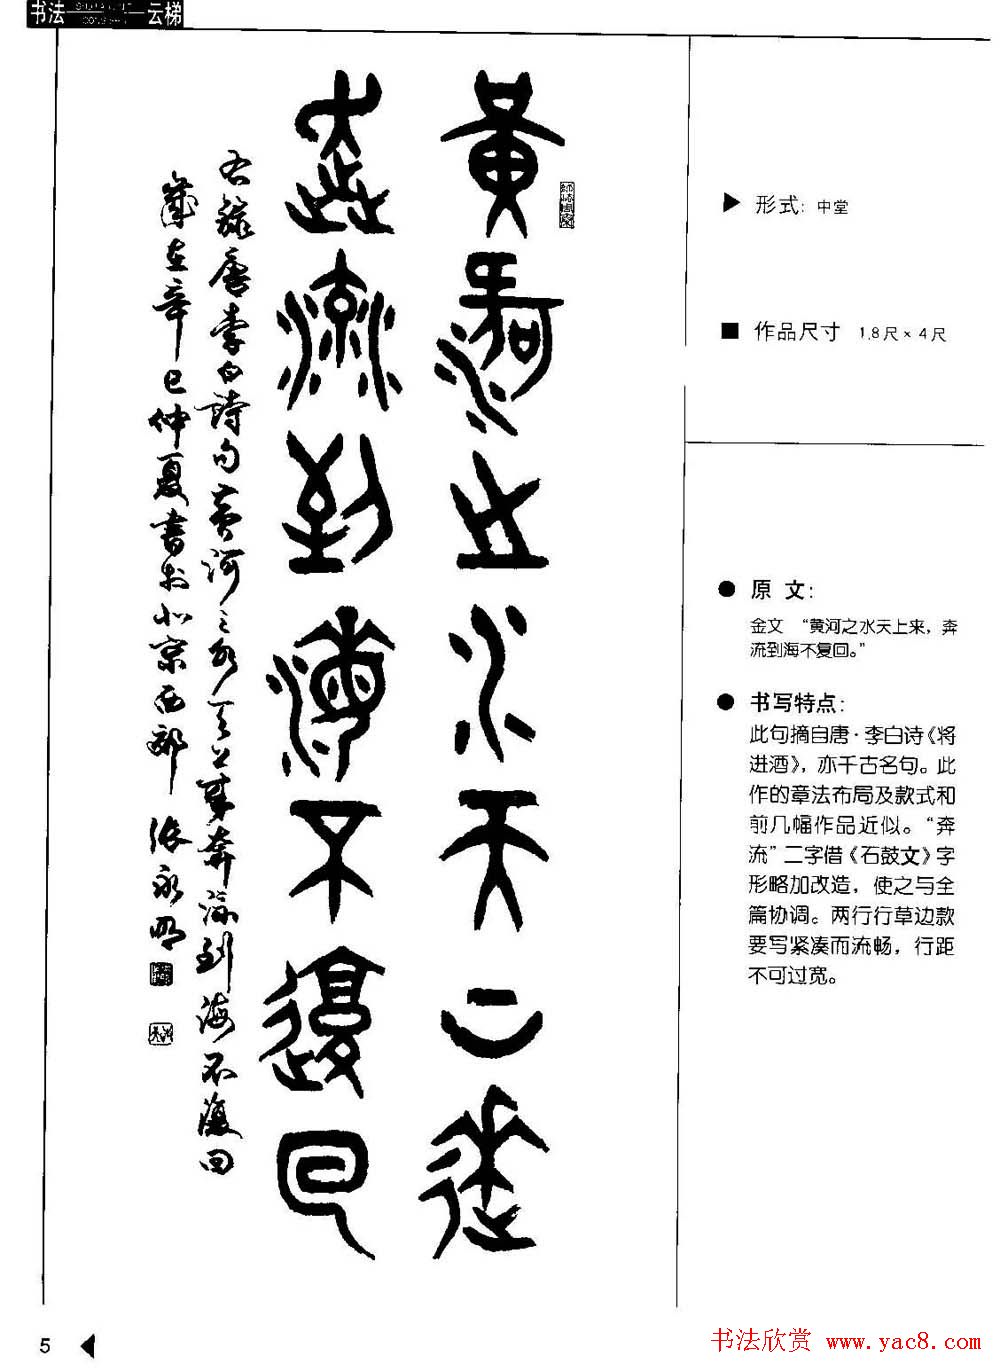 书法 云梯
黄河之水天上来
奔流到海不复回
右录唐李白诗句黄河之水天上来奔流到海不复回
岁在辛巳仲夏书于北京西郊 张永明
▶ 形式：中堂
■ 作品尺寸 1.8尺×4尺
● 原 文：
金文 “黄河之水天上来，奔
流到海不复回。”
● 书写特点：
此句摘自唐·李白诗《将
进酒》，亦千古名句。此
作的章法布局及款式和
前几幅作品近似。“奔
流”二字借《石鼓文》字
形略加改造，使之与全
篇协调。两行行草边款
要写紧凑而流畅，行距
不可过宽。
5
书法欣赏 www.yac8.com